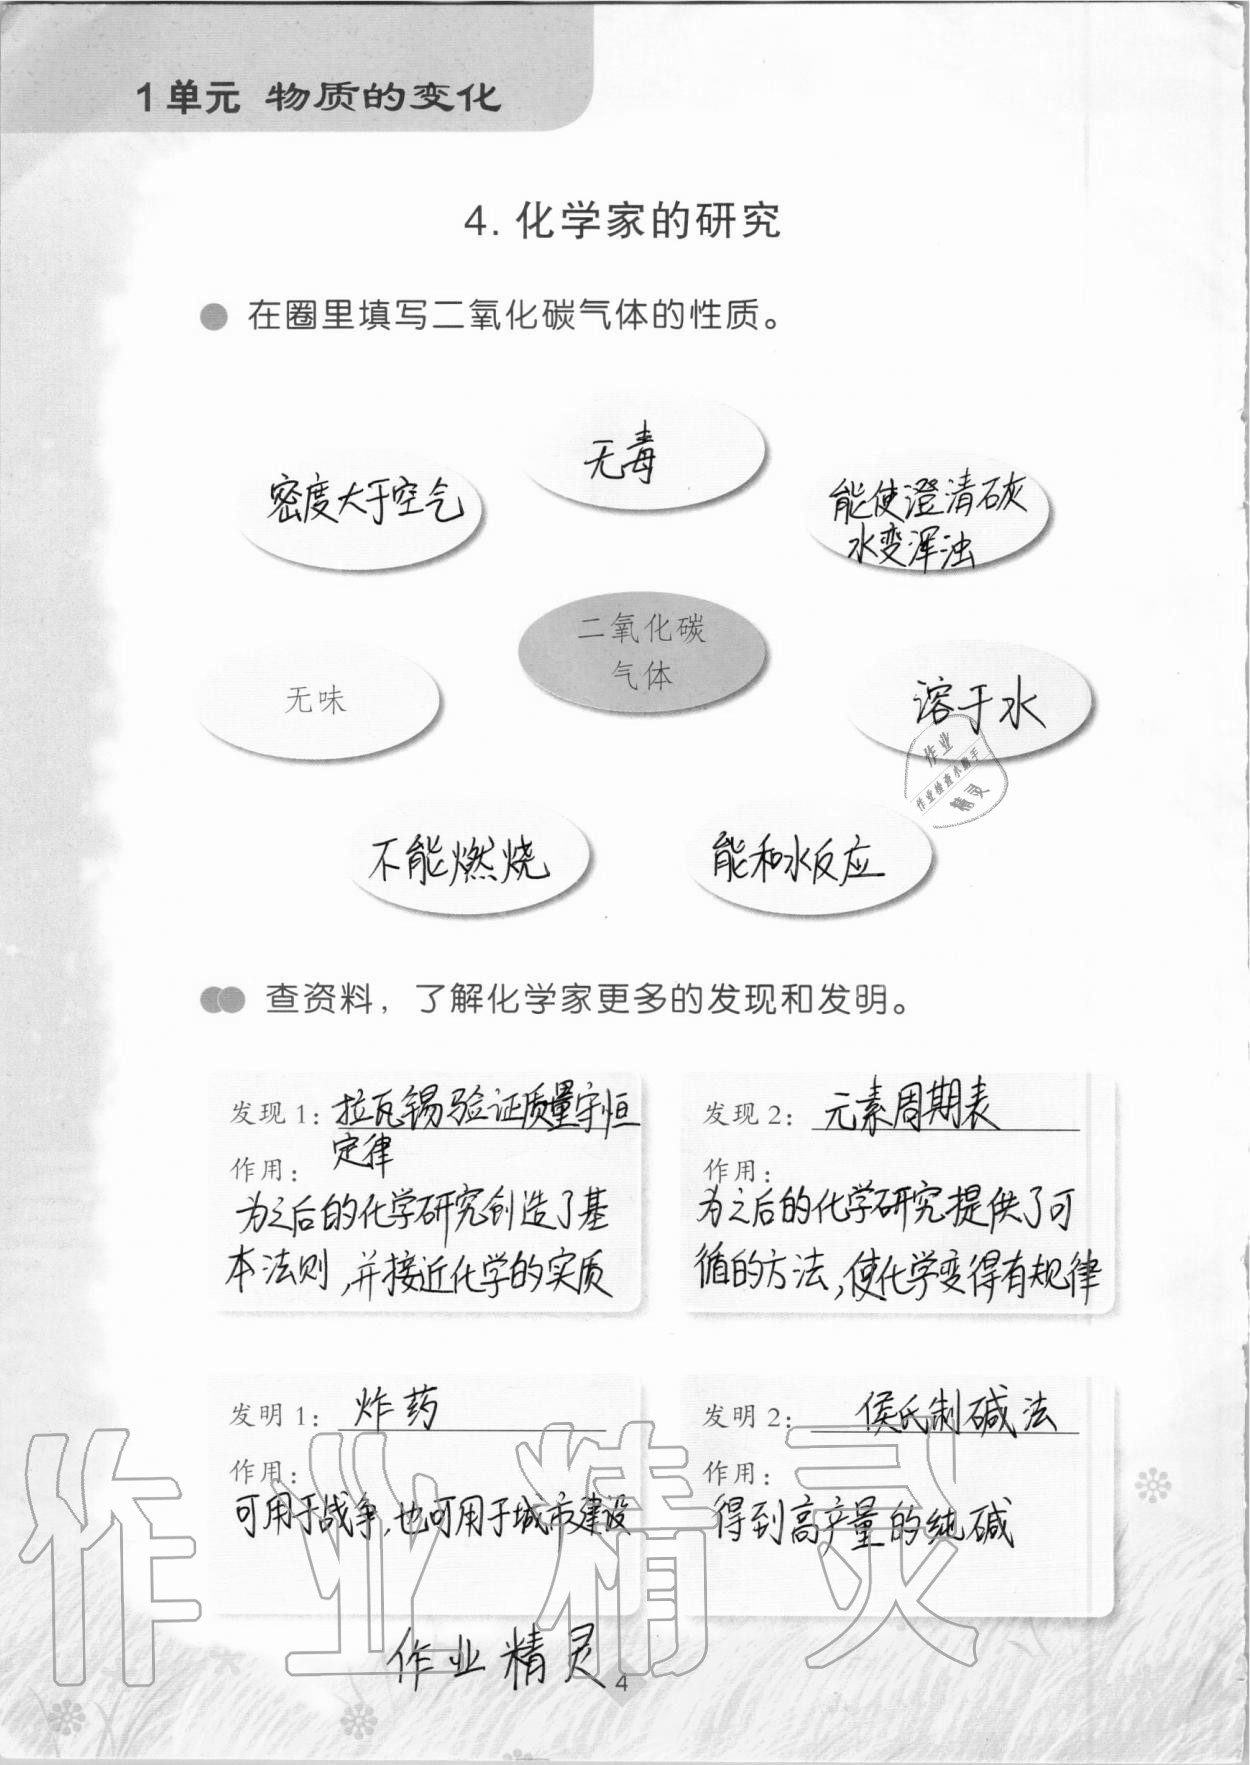 1单元 物质的变化
4. 化学家的研究
在圈里填写二氧化碳气体的性质。
无毒
密度大于空气
能使澄清石灰
水变浑浊
二氧化碳
气体
无味
溶于水
作业
作业检查小助手
精灵
不能燃烧
能和水反应
查资料，了解化学家更多的发现和发明。
发现1：拉瓦锡验证质量守恒
定律
作用：
为之后的化学研究创造了基
本法则,并接近化学的实质
发现2：元素周期表
作用：
为之后的化学研究提供了可
循的方法,使化学变得有规律
发明1：炸药
作用：
可用于战争,也可用于城市建设
发明2：侯氏制碱法
作用：
得到高产量的纯碱
作业精灵
作业精灵
4